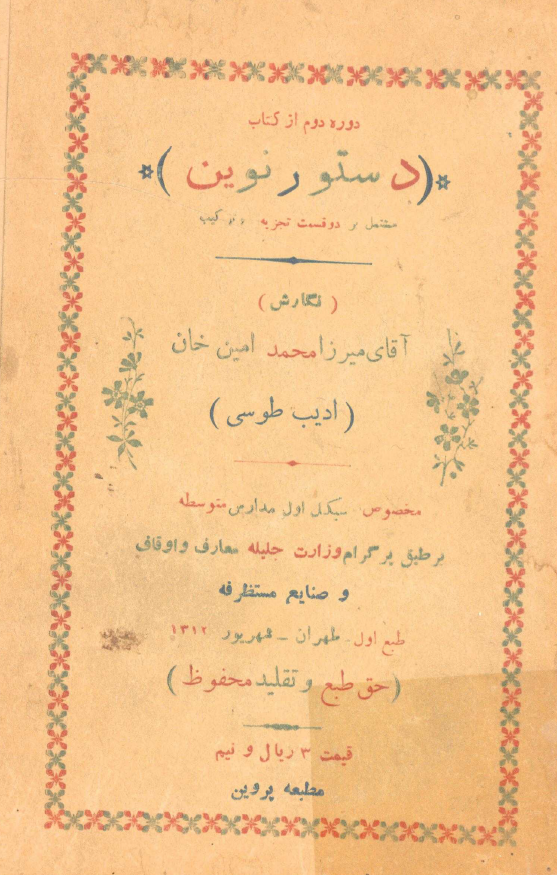 دوره دوم از کتاب
(دستور نوین)
مشتمل بر دو قسمت تجزیه و ترکیب
(نگارش)
آقای میرزا محمد امین خان
(ادیب طوسی)
مخصوص سیکل اول مدارس متوسطه
بر طبق پرگرام وزارت جلیله معارف و اوقاف
و صنایع مستظرفه
طبع اول - طهران - شهریور ۱۳۱۲
(حق طبع و تقلید محفوظ)
قیمت ۳ ریال و نیم
مطبعه پروین